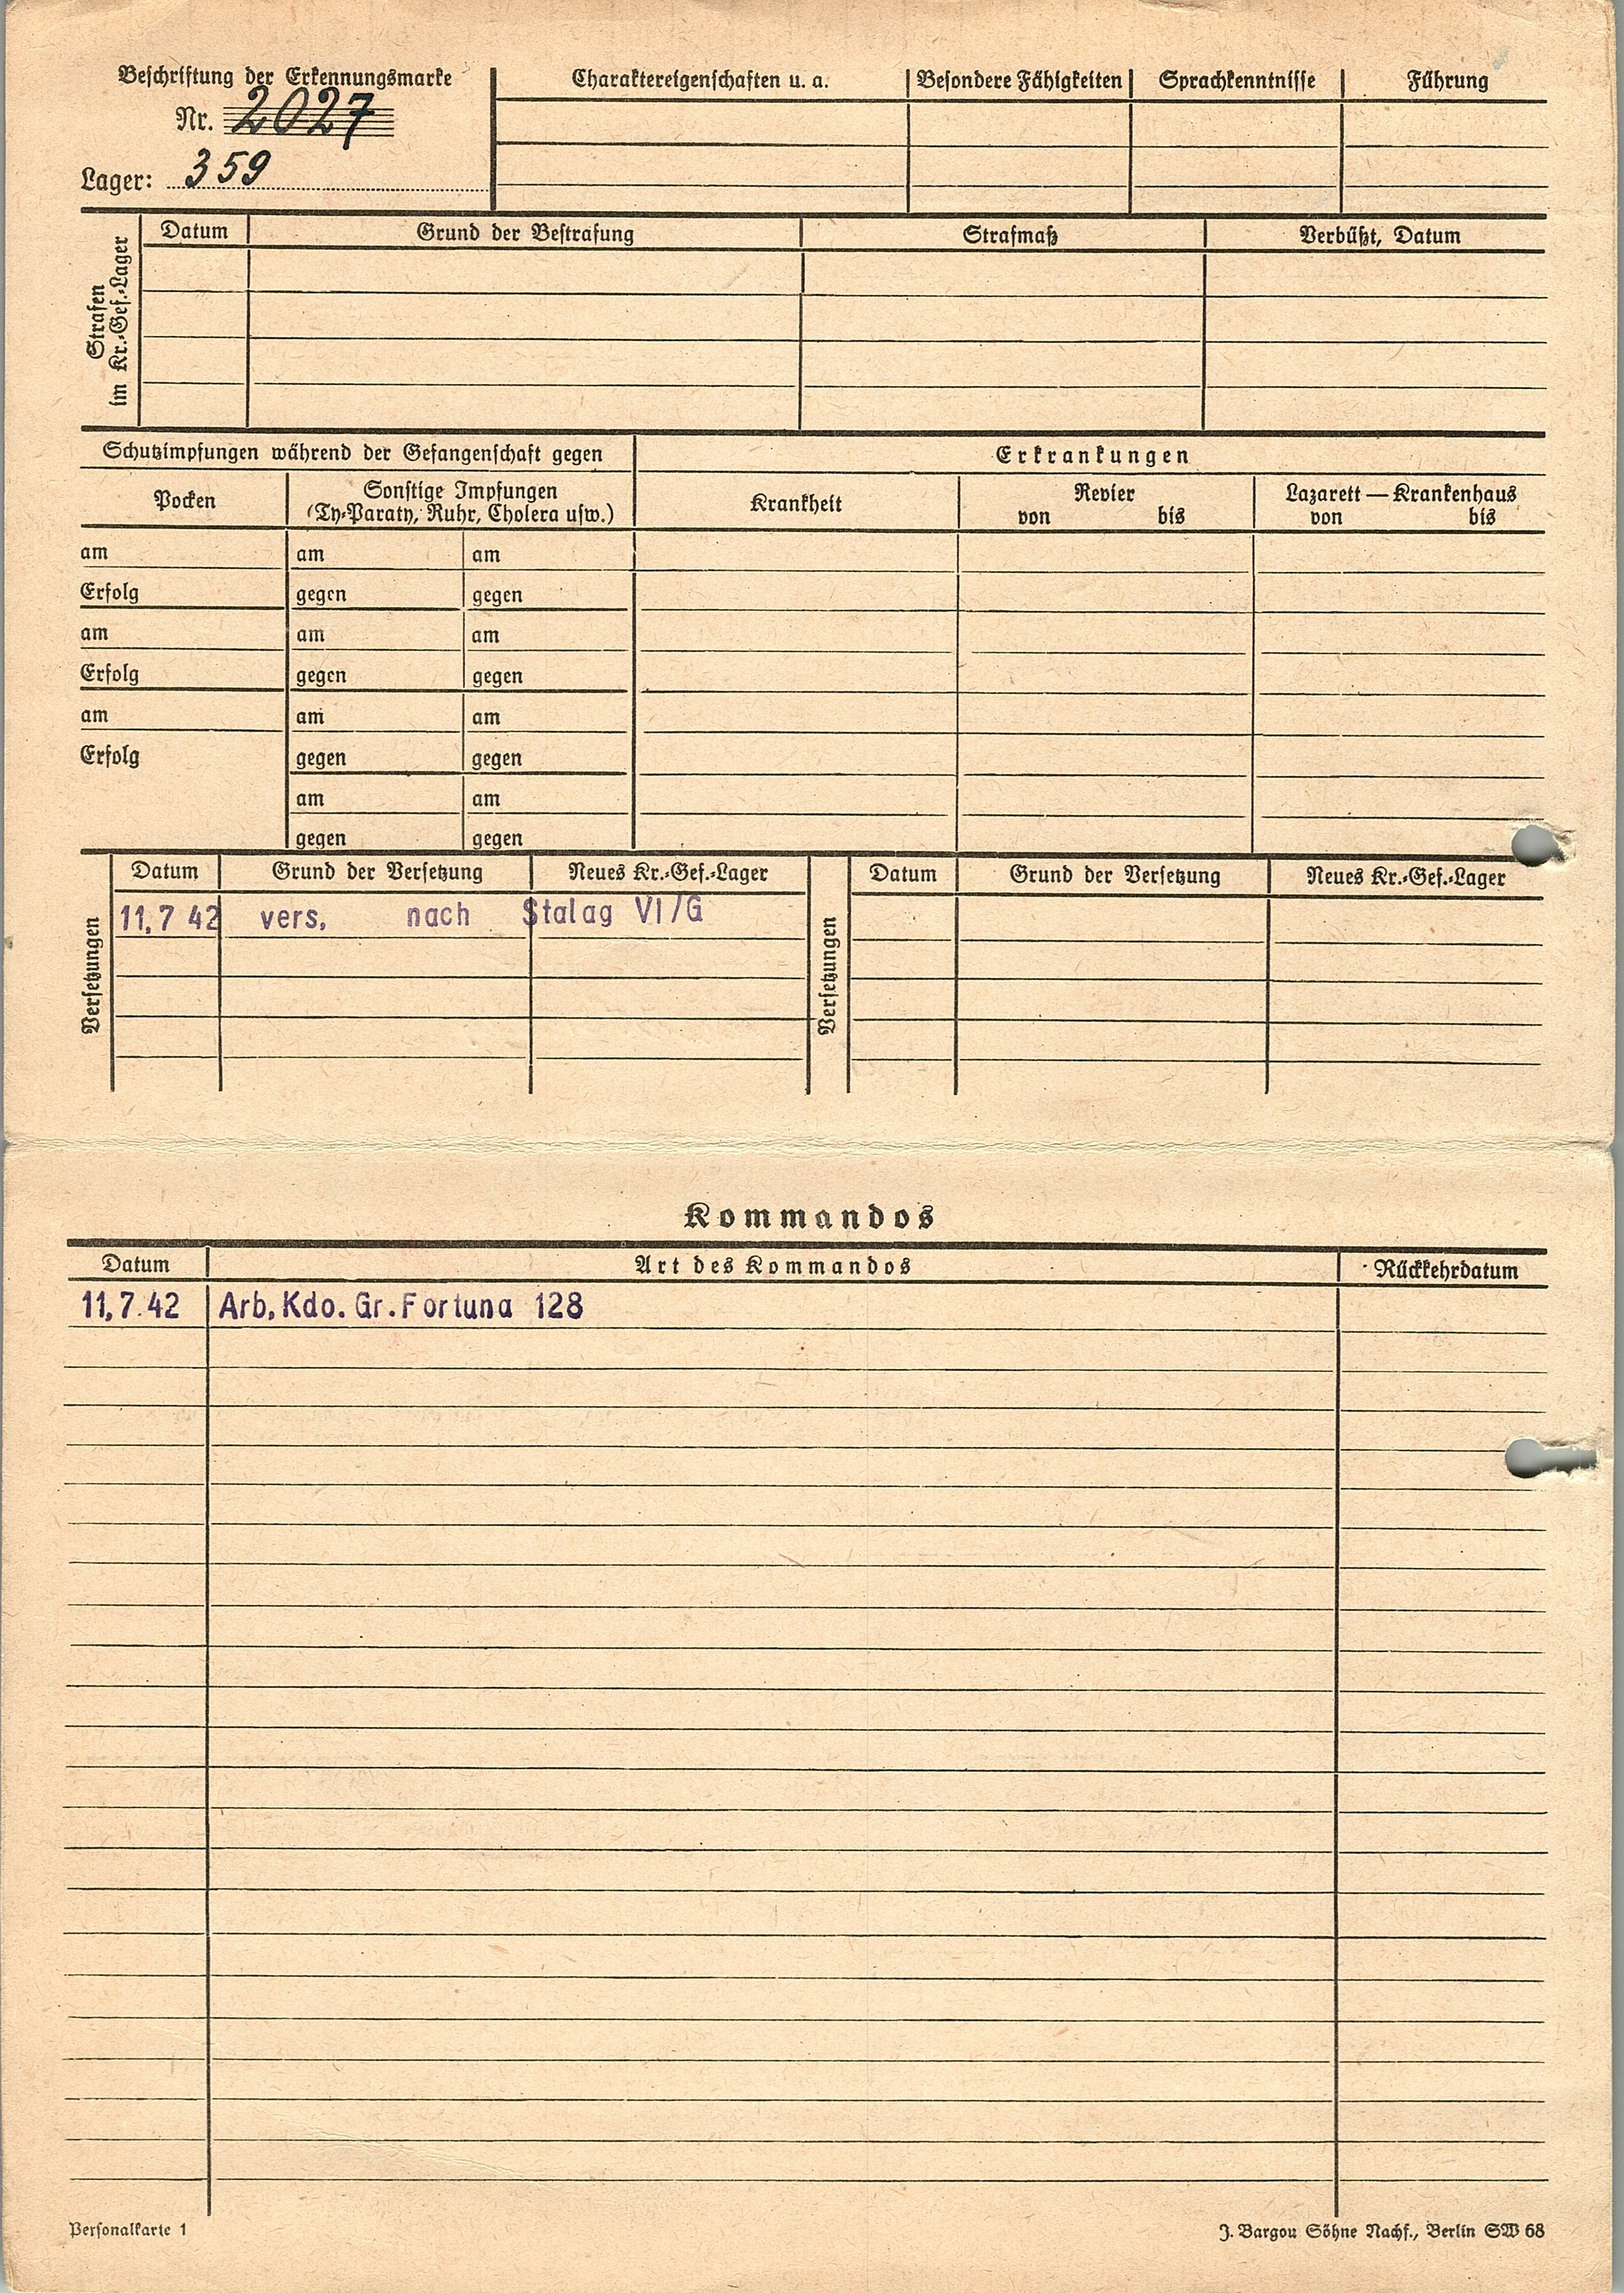 Beschriftung der Erkennungsmarke
Nr. 2027
Lager: 359
Charaktereigenschaften u. a.
Besondere Fähigkeiten
Sprachkenntnisse
Führung
Strafen
im Kr.-Gef.-Lager
Datum
Grund der Bestrafung
Strafmaß
Verbüßt, Datum
Schutzimpfungen während der Gefangenschaft gegen
Erkrankungen
Pocken
Sonstige Impfungen
(Ty-Paraty, Ruhr, Cholera usw.)
Krankheit
Revier
von bis
Lazarett — Krankenhaus
von bis
am am am
Erfolg gegen gegen
am am am
Erfolg gegen gegen
am am am
Erfolg gegen gegen
am am
gegen gegen
Versetzungen
Datum Grund der Versetzung Neues Kr.-Gef.-Lager
11,7 42 vers, nach Stalag VI/G
Versetzungen
Datum Grund der Versetzung Neues Kr.-Gef.-Lager
Kommandos
Datum Art des Kommandos Rückkehrdatum
11,7.42 Arb,Kdo.Gr.Fortuna 128
Personalkarte 1
J. Bargou Söhne Nachf., Berlin SW 68